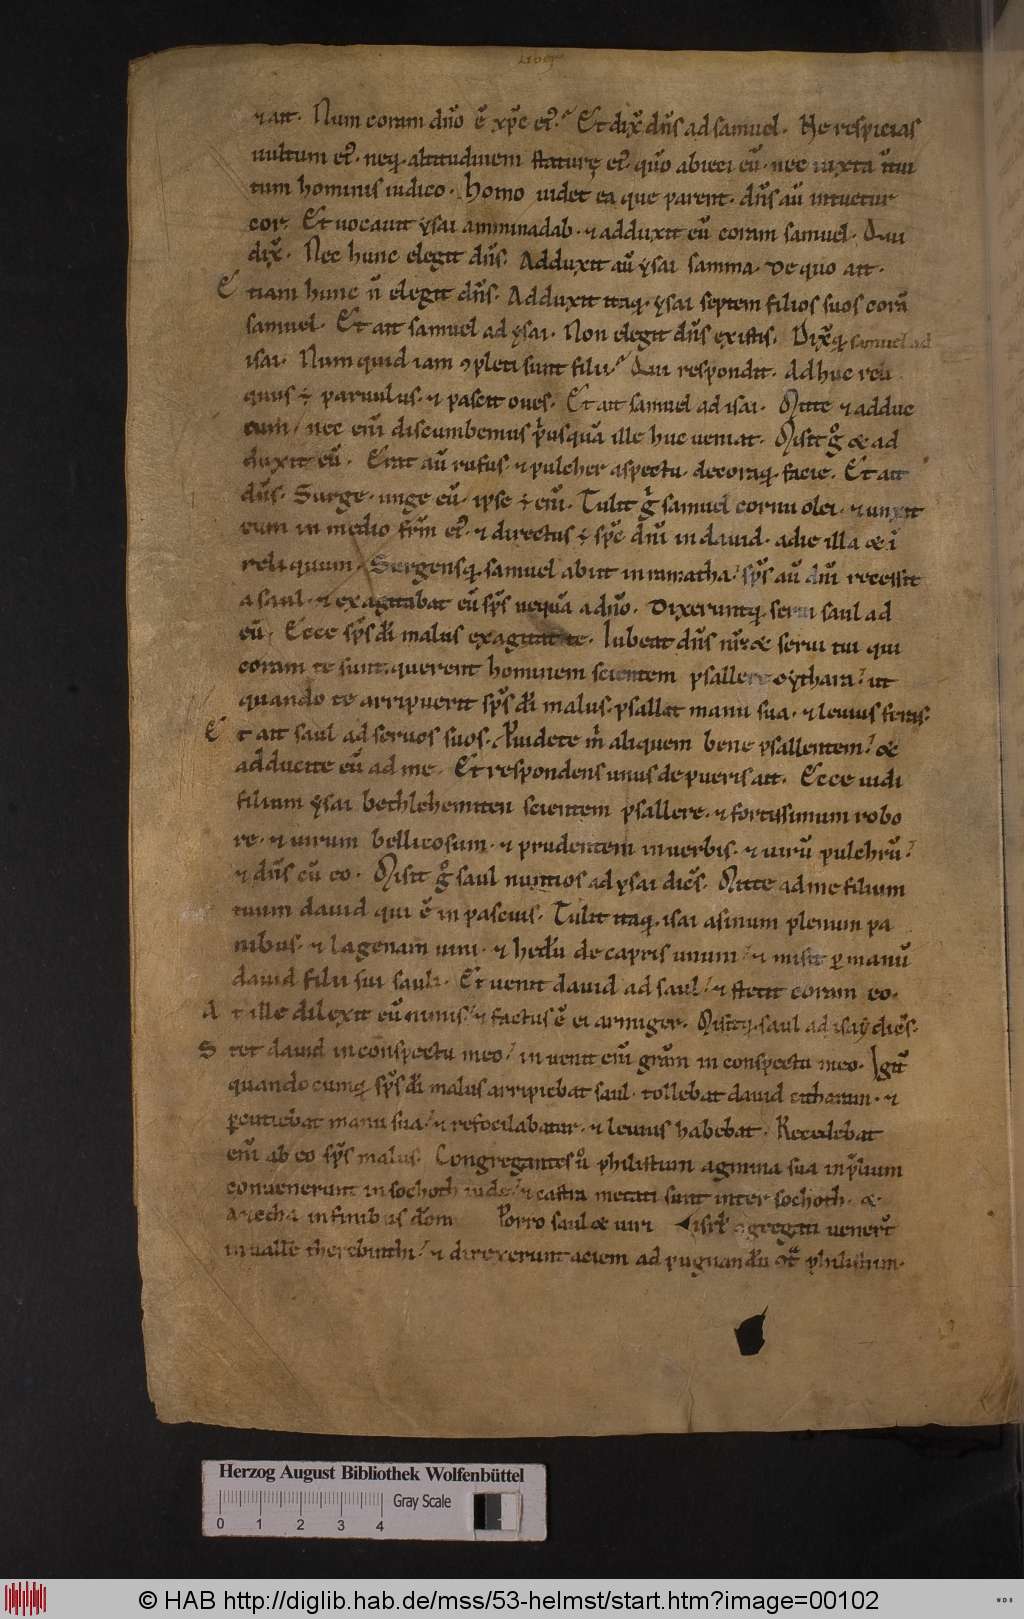 Liber
⁊ ait. Num coram dño ẽ xp̃c eı᷒? Et dix̃ dñs ad samuel. Ne respicias
uultum eı᷒. neq; altitudinem staturę eı᷒. qũo abieci eũ. nec iuxta ĩtui
tum hominis iudico. Homo uidet ea que parent. dñs aũ intuetur
cor. Et uocauit ẏsai amminadab. ⁊ adduxit eũ coram samuel. Qui
dix̃. Nec hunc elegit dñs. Adduxit aũ ẏsai samma. De quo ait.
E tiam hunc ñ elegit dñs. Adduxit itaq; ẏsai septem filios suos corã
samuel. Et ait samuel ad ẏsai. Non elegit dñs ex istis. Dix̃q; samuel ad
isai. Num quid iam ꝯpleti sunt filii? Qui respondit. Adhuc reli
quus ÷ paruulus. ⁊ pascit oues. Et ait samuel ad isai. Mitte ⁊ adduc
eum. nec eni᷒ discumbemus p̃usquã ille huc ueniat. Misit gͦ & ad
duxit eũ. Erat aũ rufus. ⁊ pulcher aspectu. decoraq; facie. Et ait
dñs. Surge. unge eũ. ipse ÷ eñi. Tulit gͥ samuel cornu olei. ⁊ unxit
eum in medio fr̃m eı᷒. ⁊ directus ÷ sp̃c dñi in dauid. a die illa & ĩ
reliquum. Surgensq; samuel abiit in ramatha. sp̃s aũ dñi recessit
a saul. ⁊ exagitabat eũ sp̃s nequã a dño. Dixeruntq; serui saul ad
eũ. Ecce sp̃s dı̃ malus exagitat te. Iubeat dñs nr̃ & serui tui qui
coram te sunt. querent hominem scientem psallere cẏthara. ut
quando te arripuerit sp̃s dı̃ malus. psallat manu sua. ⁊ leuius feras.
E t ait saul ad seruos suos. Puidete m̃ aliquem bene psallentem. &
adducite eũ ad me. Et respondens unus de pueris ait. Ecce uidi
filium ẏsai bethlehemiten scientem psallere. ⁊ fortissimum robo
re. ⁊ uirum bellicosum. ⁊ prudentem in uerbis. ⁊ uirũ pulchrũ.
⁊ dñs cũ eo. Misit gͦ saul nuntios ad ẏsai dic̃s. Mitte ad me filium
tuum dauid qui ẽ in pascuis. Tulit itaq; isai asinum plenum pa
nibus. ⁊ lagenam uini. ⁊ hedũ de capris unum. ⁊ misit p manũ
dauid filii sui sauli. Et uenit dauid ad saul. ⁊ stetit coram eo.
A t ille dilexit eũ nimis. ⁊ factus ẽ ei armiger. Misitq; saul ad isaẏ dic̃s.
S tet dauid in conspectu meo. inuenit eñi grãm in conspectu meo. Igit̃
quandocumq; sp̃s dı̃ malus arripiebat saul. tollebat dauid citharam. ⁊
pcutiebat manu sua. ⁊ refocilabatur. ⁊ leuius habebat. Recedebat
eñi ab eo sp̃s malus. Congregantes ũ philistiim agmina sua in p̃lium
conuenerunt in sochoth iude. ⁊ castra metati sunt inter sochoth. &
azecha in finibus dom Porro saul & uiri isrl̃ agregati uener̃t
in ualle therebinthi. ⁊ direxerunt aciem ad pugnandũ ꝯt̃ philistiim.
Herzog August Bibliothek Wolfenbüttel
Gray Scale
0 1 2 3 4
© HAB http://diglib.hab.de/mss/53-helmst/start.htm?image=00102